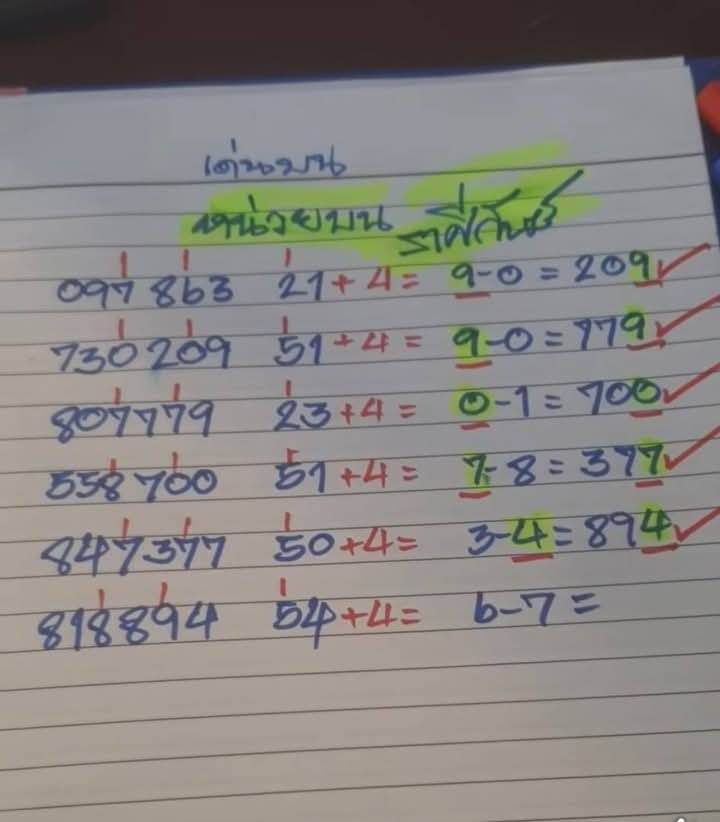 เด่นบน
หน่วยบน ราศีกันย์
097 863 21+4= 9-0 = 209
730209 51+4= 9-0=779
807779 23+4= 0-1= 700
558700 51+4= 7-8=377
847377 50+4= 3-4=894
818894 54+4= 6-7=